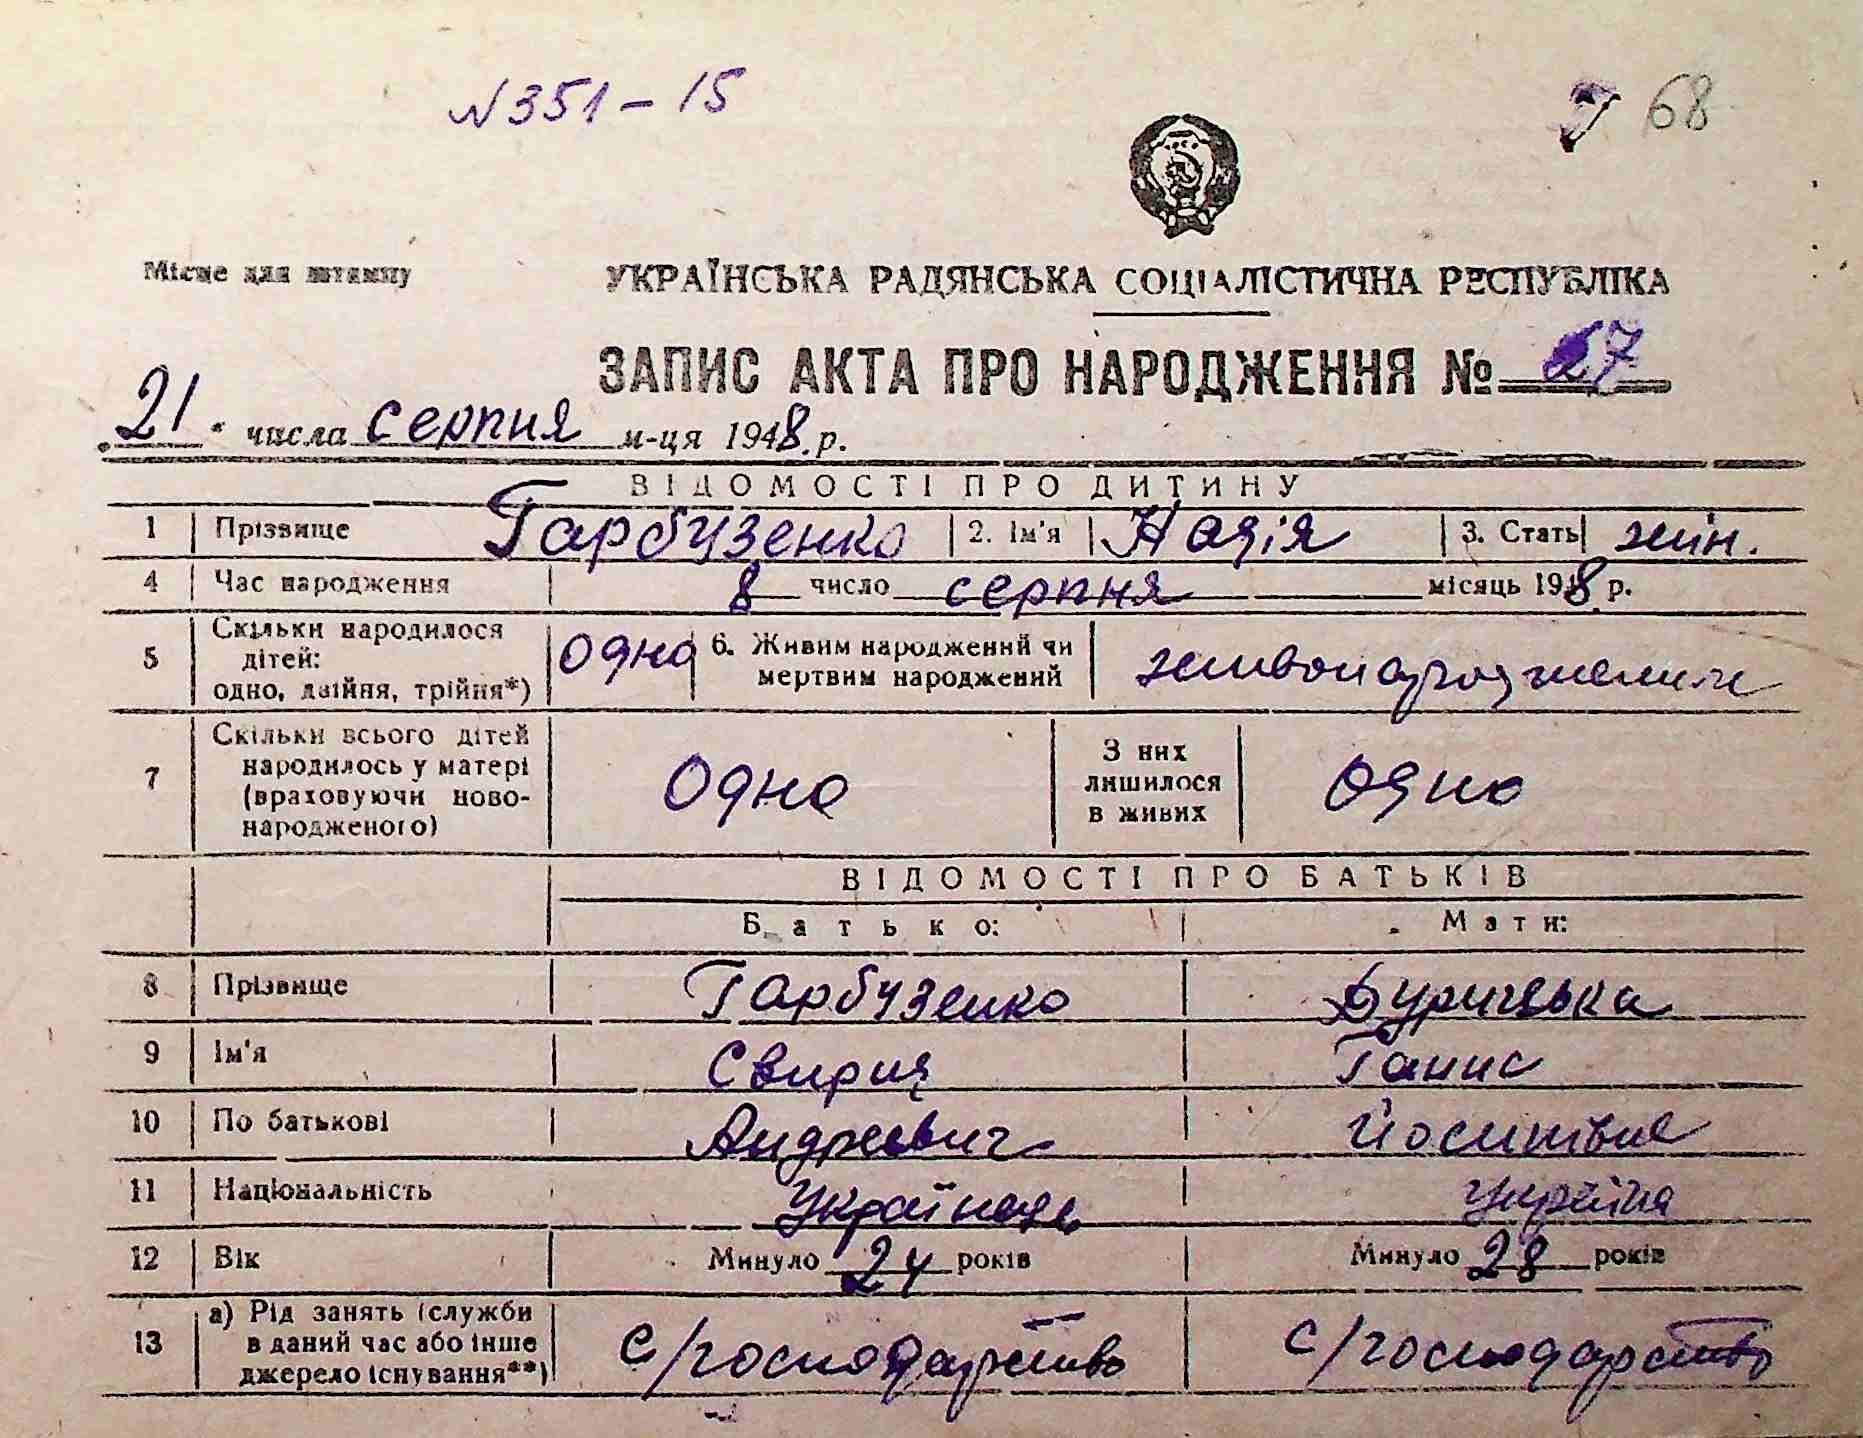 N351-15
68
Місце для штампу
УКРАЇНСЬКА РАДЯНСЬКА СОЦІАЛІСТИЧНА РЕСПУБЛІКА
ЗАПИС АКТА ПРО НАРОДЖЕННЯ № 67
„21" числа серпня м-ця 1948 р.
ВІДОМОСТІ ПРО ДИТИНУ
1 Прізвище Гарбузенко 2. Ім'я Надія 3. Стать жін.
4 Час народження 8 число серпня місяць 1948 р.
5 Скільки народилося дітей: одно, двійня, трійня*) одно 6. Живим народжений чи мертвим народжений живонароджений
7 Скільки всього дітей народилось у матері (враховуючи новонародженого) Одно З них лишилося в живих одно
ВІДОМОСТІ ПРО БАТЬКІВ
Батько: Мати:
8 Прізвище Гарбузенко
9 Ім'я Свирид Ганна
10 По батькові Андреевич Йосипівна
11 Національність Українець Україна
12 Вік Минуло 24 років Минуло 28 років
13 а) Рід занять (служби в даний час або інше джерело існування**) с/господарство с/господарство